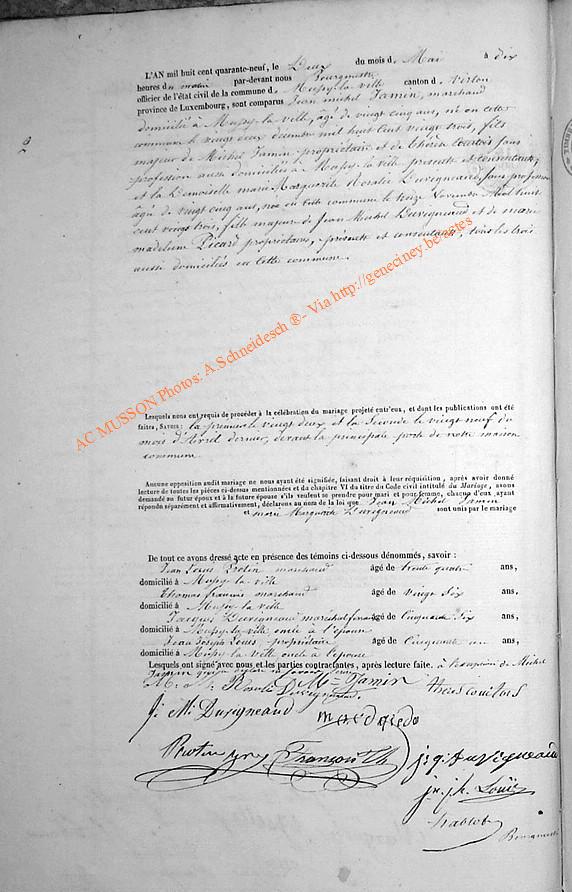 L'AN mil huit cent quarante-neuf, le Deux du mois d. Mai à dix
heures du matin par-devant nous Bourgmestre
officier de l'état civil de la commune d. Mussy-la-ville canton d. Virton
province de Luxembourg, sont comparus Jean michel Jamin, marchand
domicilié à Mussy-la-ville, agé de vingt cinq ans, né en cette
commune le vingt deux décembre mil huit cent vingt trois, fils
majeur de Michel Jamin propriétaire et de Thérèse Courtois sans
profession aussi domiciliés à Mussy-la-ville présents et consentants,
et la Demoiselle marie Marguerite Rosalie Duvigneaud, sans profession
agée de vingt cinq ans, née en cette commune le treize Novembre Mil huit
cent vingt trois, fille majeure de Jean Michel Duvigneaud et de marie
madeleine Picard propriétaires, présents et consentants, tous les trois
aussi domiciliés en cette commune.
2
Lesquels nous ont requis de procéder à la célébration du mariage projeté entr'eux, et dont les publications ont été
faites, SAVOIR: la première le vingt deux et la seconde le vingt neuf du
mois d'Avril dernier, devant la principale porte de notre maison
commune.
Aucune opposition audit mariage ne nous ayant été signifiée, faisant droit à leur réquisition, après avoir donné
lecture de toutes les pièces ci-dessus mentionnées et du chapitre VI du titre du Code civil intitulé du Mariage, avons
demandé au futur époux et à la future épouse s'ils veulent se prendre pour mari et pour femme, chacun d'eux ayant
répondu séparément et affirmativement, déclarons au nom de la loi que Jean Michel Jamin
et marie Marguerite Duvigneaud sont unis par le mariage
De tout ce avons dressé acte en présence des témoins ci-dessous dénommés, savoir:
Jean Louis Protin marchand âgé de trente quatre ans,
domicilié à Mussy-la-ville
Thomas françois marchand âgé de vingt six ans,
domicilié à Mussy la ville
Jacques Duvigneaud maréchal ferrant âgé de Cinquante six ans,
domicilié à Mussy-la-ville oncle à l'épouse
Jean Joseph Louis propriétaire âgé de Cinquante un ans,
domicilié à Mussy-la ville oncle à l'épouse
Lesquels ont signé avec nous et les parties contractantes, après lecture faite. à l'exception de Michel
Jamin
M. Jamin
Rosalie Duvigneaud
J. M. Duvigneaud
Protin
François Th
jq. Duvigneaud
jn. jh. Louis
Bourgmestre
AC MUSSON Photos: A.Schneidesch ®- Via http://geneciney.be.gites